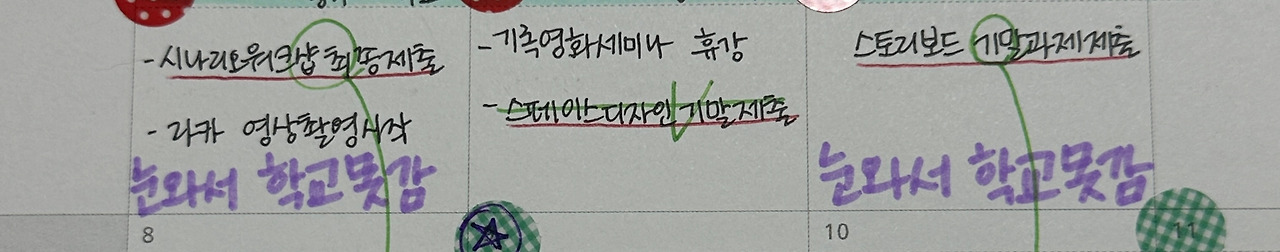 - 시나리오워크샵 최종제출
- 라카 영상촬영시작
눈와서 학교못감
- 기록영화세미나 휴강
- 스페이스디자인 기말제출
스토리보드 기말과제제출
눈와서 학교못감
8
10
11